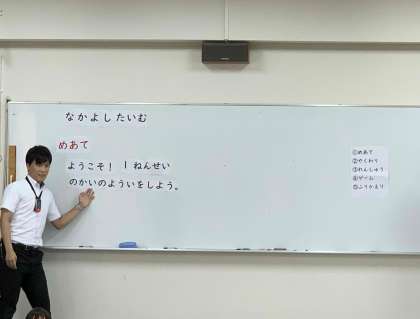 なかよしたいむ
めあて
ようこそ！１ねんせい
のかいのよういをしよう。
①めあて
②やくわり
③れんしゅう
④ゲーム
⑤ふりかえり